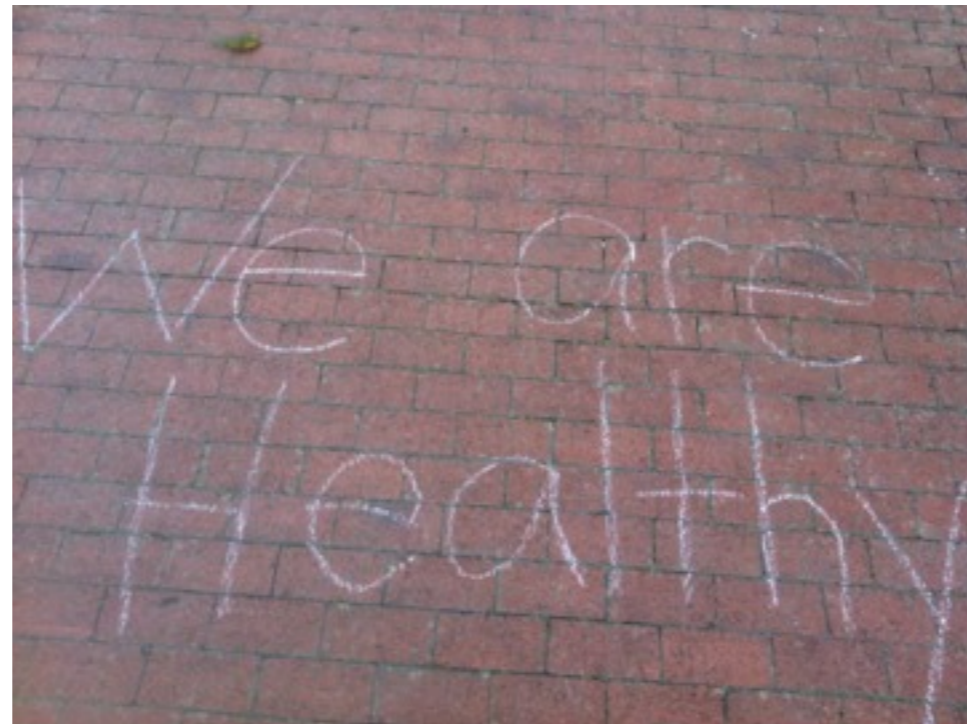 We are
Healthy